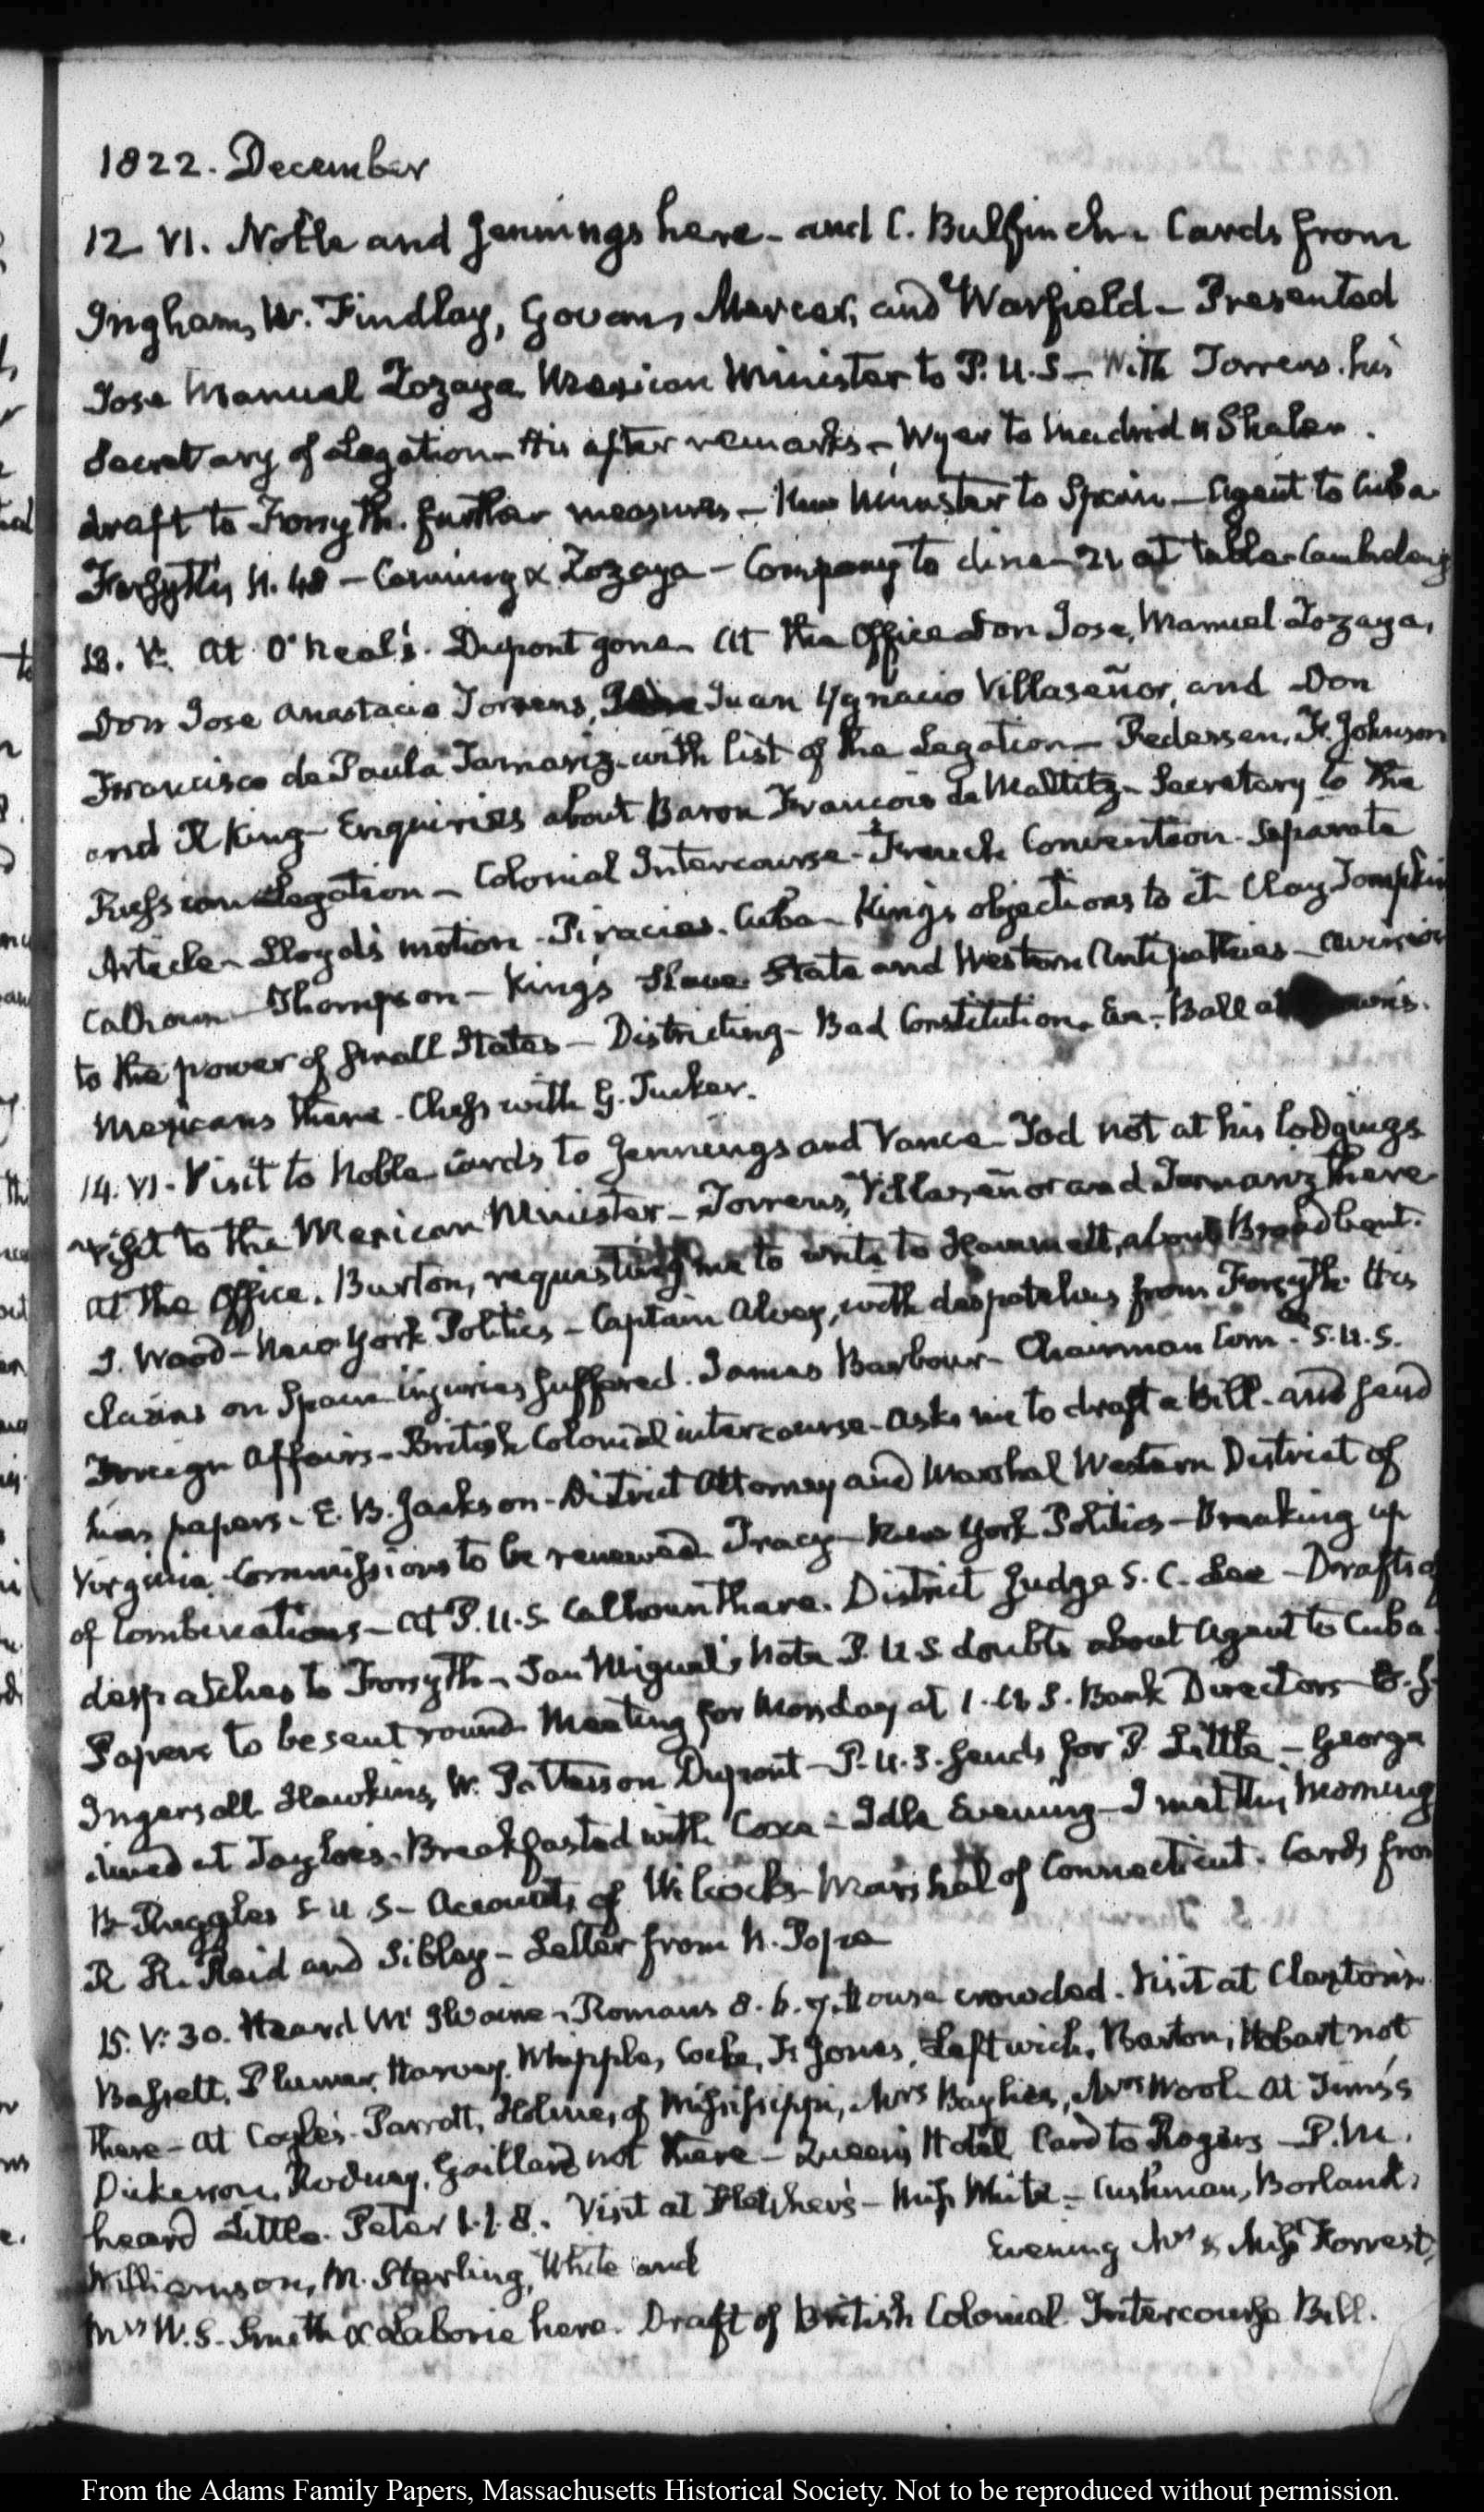 1822. December
12 VI. Noble and Jennings here - and C. Bulfinch. Cards from
Ingham, W. Findlay, Govan, Mercer, and Warfield - Presented
Jose Manuel Zozaya Mexican Minister to P. U. S - With Torrens. his
Secretary of Legation - His after remarks - Wyer to Madrid Shaler.
draft to Forsyth. further measures - New Minister to Spain - Agent to Cuba
Forsyth's N. 48 - Canning & Zozaya - Company to dine - 21 at table
13. V. At O'Neal's. Dupont gone. At the Office Don Jose, Manuel Zozaya,
Don Jose Anastacio Torrens, Juan Ygnacio Villaseñor, and Don
Francisco de Paula Tamariz with list of the Legation - Pedersen, F. Johnson
and R King - Enquiries about Baron Francois de Maltitz - Secretary to the
Russian Legation - Colonial Intercourse - French Convention. Separate
Article - Lloyd's motion - Piracies. Cuba - King's objections to it Clay Tompkin
Calhoun - Thompson - King's Slave State and Western Antipathies - aversion
to the power of small States - Districting - Bad Constitution. Ev - Ball at
Mexicans there. Chess with G. Tucker.
14. VI. Visit to Noble cards to Jennings and Vance - Tod not at his lodgings
visit to the Mexican Minister - Torrens, Villaseñor and Tamariz there
At the Office. Burton, requesting me to write to Hammett, about Broadbent.
S. Wood - New York Politics - Captain Alvey, with despatches from Forsyth His
claims on Spain injuries suffered. James Barbour - Chairman Com.ee S. U. S.
Foreign Affairs - British Colonial intercourse - asks me to draft a Bill. and send
him papers - E. B. Jackson - District Attorney and Marshal Western District of
Virginia. Commissions to be renewed Tracy - New York Politics - Breaking up
of Combinations - At P. U. S. Calhoun there. District Judge S. C. Lee - Drafts of
despatches to Forsyth - San Miguel's Note P. U S doubts about Agent to Cuba.
Papers to be sent round Meeting for Monday at 1. U S. Bank Directors
Ingersoll Hawkins, W. Patterson Dupont - P. U. S. sends for P. Little - George
dined at Tayloe's. Breakfasted with Coxe - Idle Evening - I met this Morning
B. Ruggles S U S - Accounts of Wilcocks Marshal of Connecticut. Cards from
R R. Reid and Sibley - Letter from N. Pope
15. V: 30. Heard McIlvaine - Romans 8. 6. 7. House crowded. Visit at Claxton's
Bassett, Plumer, Harvey, Whipple, Cocke, F. Jones, Leftwich, Barton, Hobart not
there - At Coyle's Parrott, Holmes, of Mississippi, Mrs Baylies, Mrs Wool. At Tims's
Dickerson, Rodney, Gaillard not there - Queen's Hotel Card to Rogers - P. M.
heard Little. Peter 1. 1. 8. Visit at Fletcher's - Miss White - Cushman, Borland,
Williamson, M. Sterling, White and Evening Mrs & Miss Forrest,
Mrs W. S. Smith & Laborie here. Draft of British Colonial Intercourse Bill.
From the Adams Family Papers, Massachusetts Historical Society. Not to be reproduced without permission.